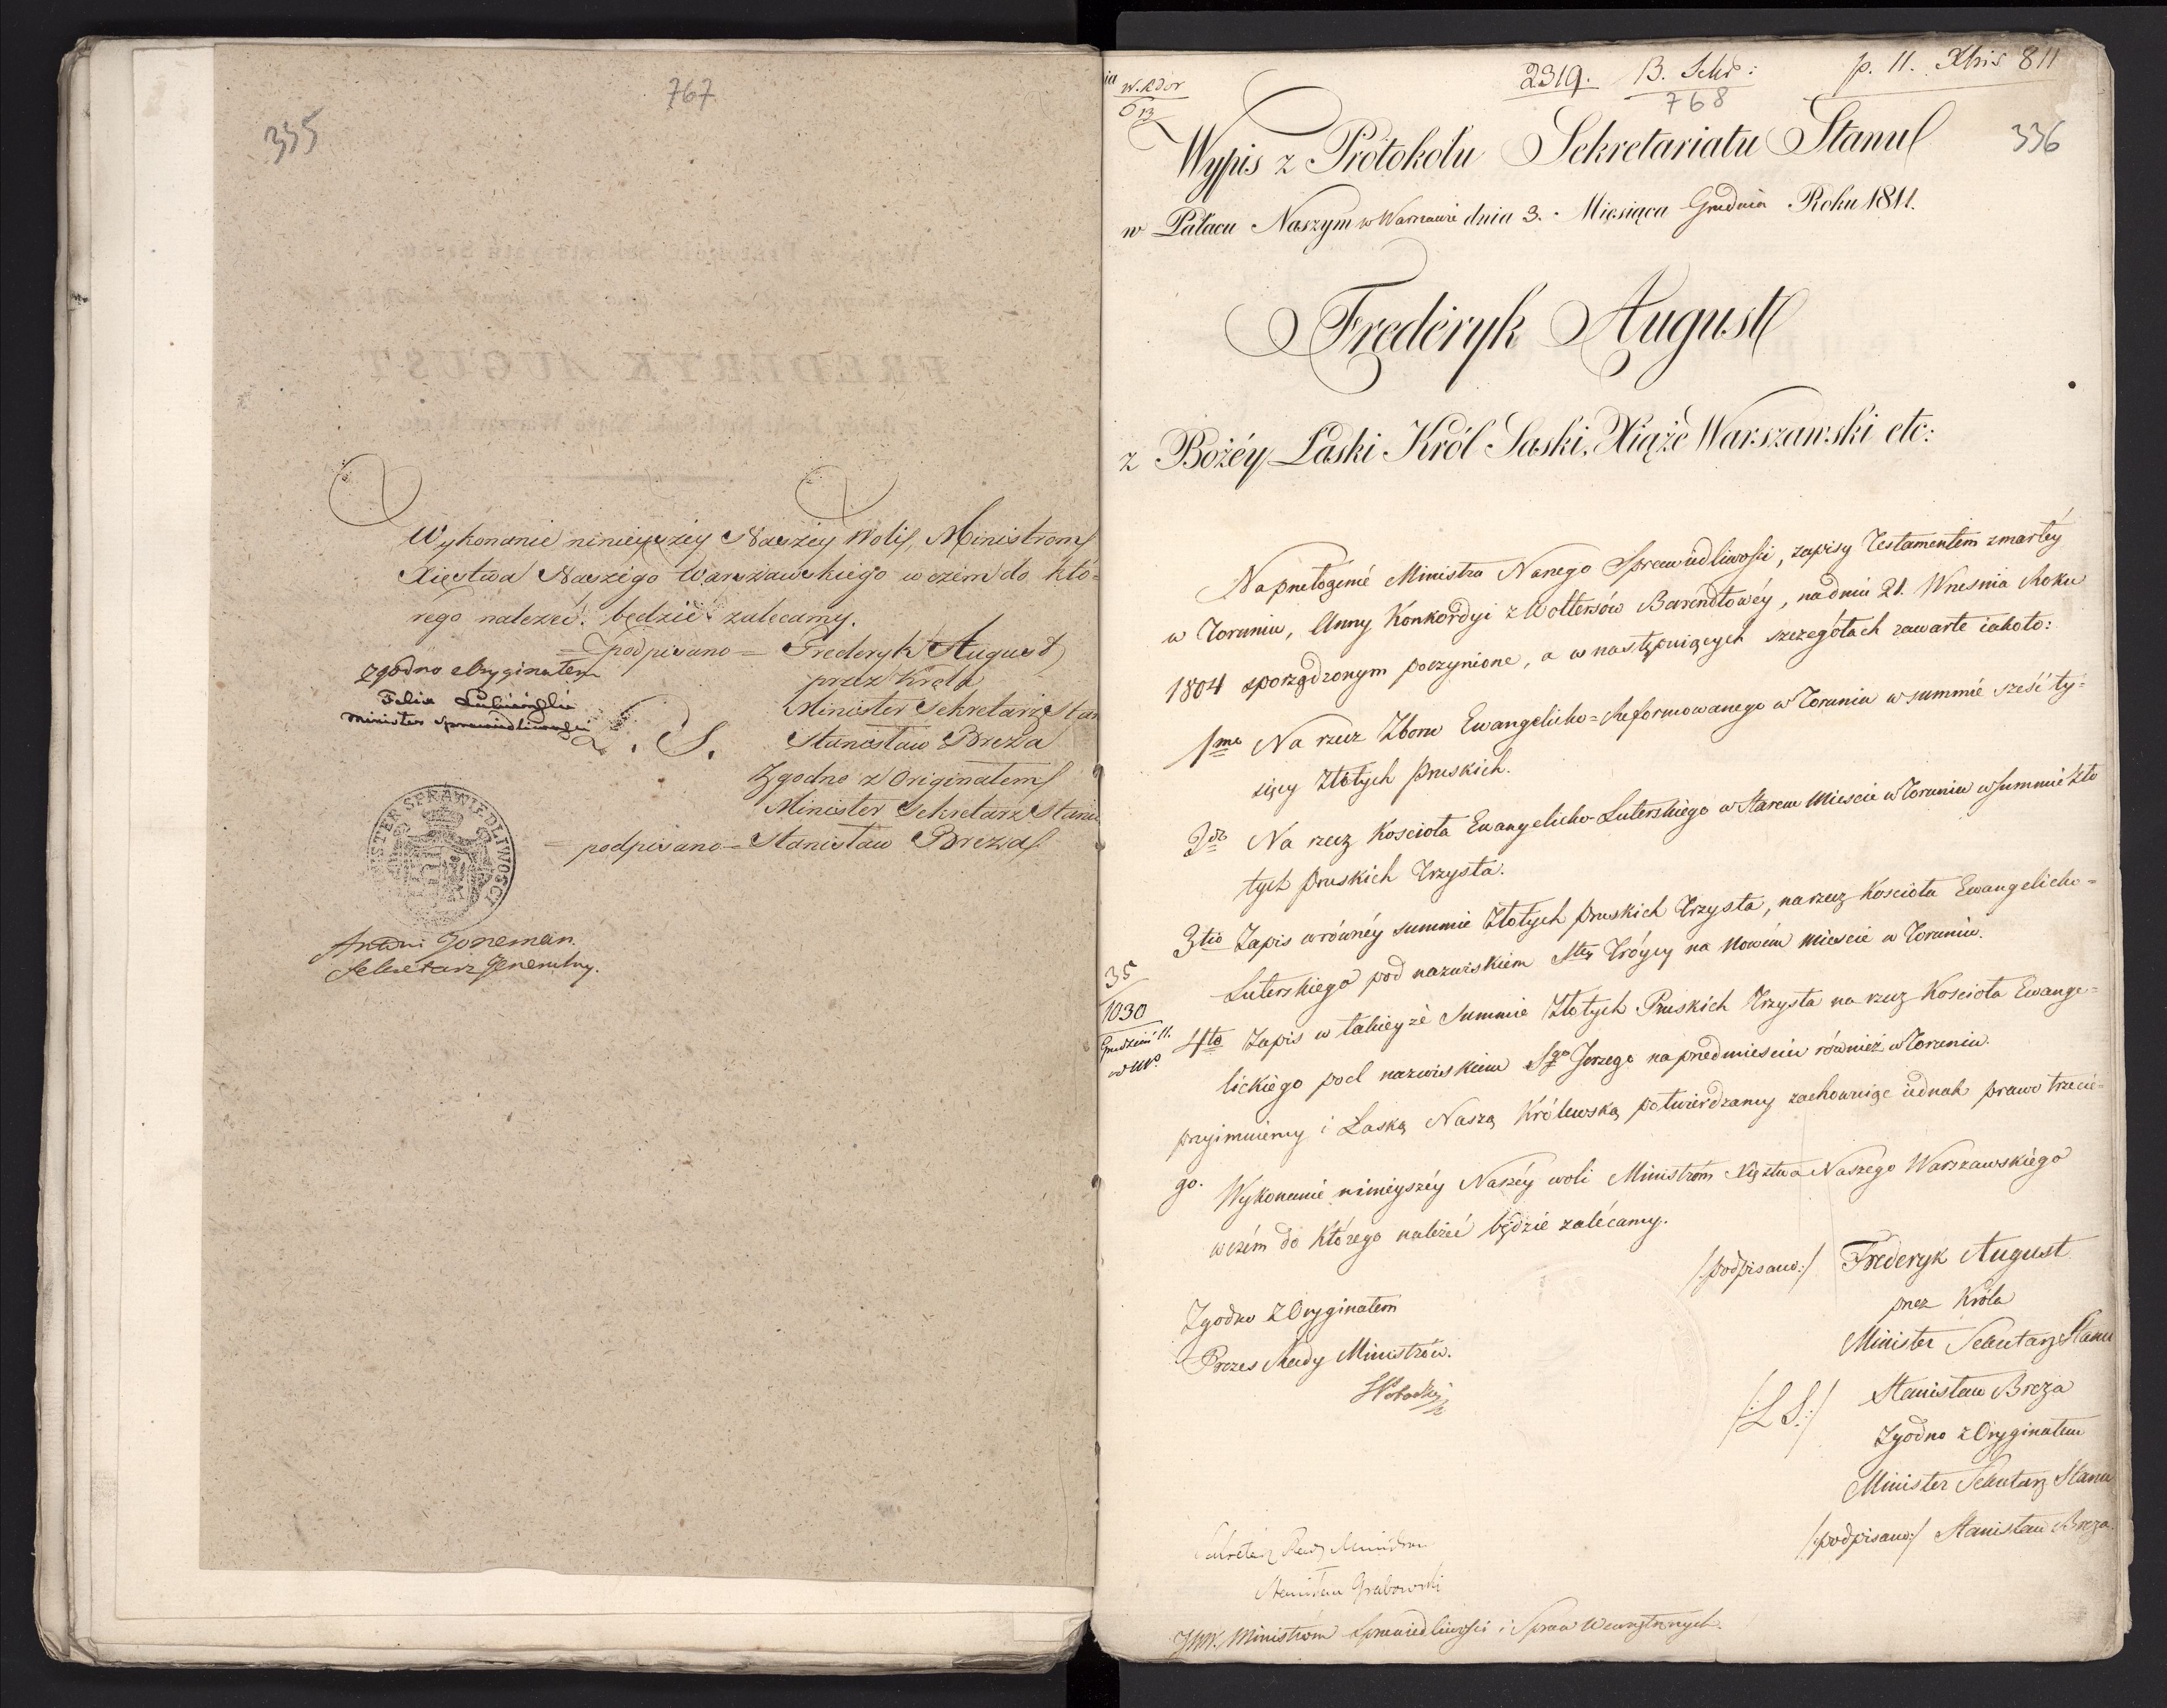 767
335
Wykonanie ninieyszey Naszey Woli, Ministrom
Xięstwa Naszego Warszawskiego w czém do któ=
rego należeć będzie zalecamy.
= podpisano = Frederyk August
przez Króla
Minister Sekretarz Stan
L. S. Stanisław Breza
Zgodno z Originałem
Minister Sekretarz Stanu
= podpisano = Stanisław Breza
zgodno z Oryginałem
Felix Łubieński
Minister Sprawiedliwości
MINISTER SPRAWIEDLIWOŚCI
Antoni Joneman.
Sekretarz Jeneralny.
2319. B. Schr: p. 11. Xbris 811
768
336
Wypis z Protokołu Sekretariatu Stanu
w Pałacu Naszym w Warszawie dnia 3. Miesiąca Grudnia Roku 1811.
Frederyk August
z Bożéy Łaski Król Saski, Xiąże Warszawski etc:
Na przełożenie Ministra Naszego Sprawiedliwości, zapisy Testamentem zmarłéy
w Toruniu, Anny Konkordyi z Woltersów Barendtowéy, na dniu 21. Września Roku
1804 sporządzonym poczynione, a w następuiących szczegółach zawarte iakoto:
1mo Na rzecz Zboru Ewangelicko=Reformowanego w Toruniu w summie sześć ty=
sięcy Złotych Pruskich.
2do Na rzecz Kościoła Ewangelicko-Luterskiego w Starem Mieście w Toruniu w summie Zło
tych Pruskich Trzysta.
3tio Zapis w równéy summie Złotych Pruskich Trzysta, na rzecz Kościoła Ewangelicko=
Luterskiego pod nazwiskiem Stey Tróycy na Nowém Mieście w Toruniu.
35
1030
Grudzień 11.
4to Zapis w takieyże Summie Złotych Pruskich Trzysta na rzecz Kościoła Ewange=
lickiego pod nazwiskiem Sgo Jerzego na przedmieściu również w Toruniu.
przyimuiemy i Łaską Naszą Królewską potwierdzamy zachowuiąc iednak prawo trzecie=
go.
Wykonanie ninieyszéy Naszéy woli Ministróm Xięztwa Naszego Warszawskiego
wczém do którego należeć będzie zalécamy.
/:podpisano:/ Frederyk August
przez Króla
Minister Sekretarz Stanu
/:L S:/ Stanisław Breza
Zgodno z Oryginałem
Minister Sekretarz Stanu
/podpisano:/ Stanisław Breza.
Zgodno z Oryginałem
Prezes Rady Ministrów.
Sekretarz Rady Ministrow
Stanisław Grabowski
JWW. Ministróm Sprawiedliwości i Spraw Wewnętrznych.